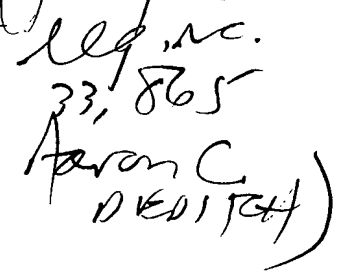 Reg. no.
33,865
Aaron C.
DEDITCH)